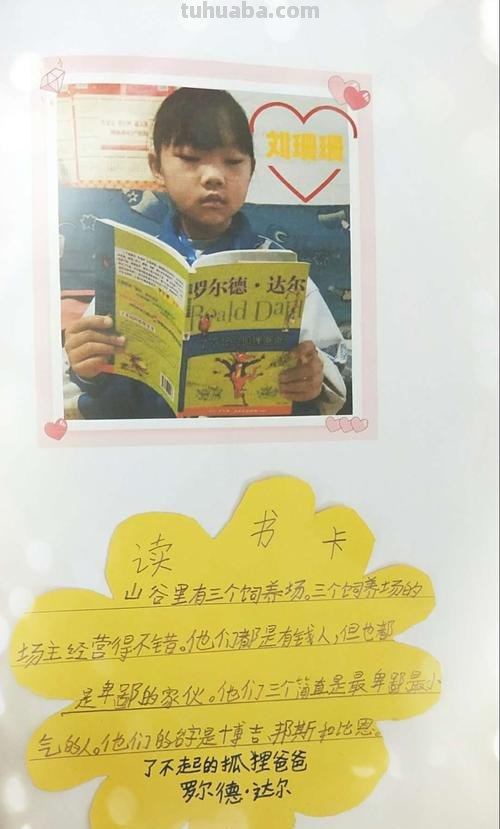 tuhuaba.com
刘珊珊
罗尔德·达尔
Roald Dahl
读书卡
山谷里有三个饲养场。三个饲养场的
场主经营得不错。他们都是有钱人,但也都
是卑鄙的家伙。他们三个简直是最卑鄙最小
气的人。他们的名字是博吉、邦斯和比恩。
了不起的狐狸爸爸
罗尔德·达尔